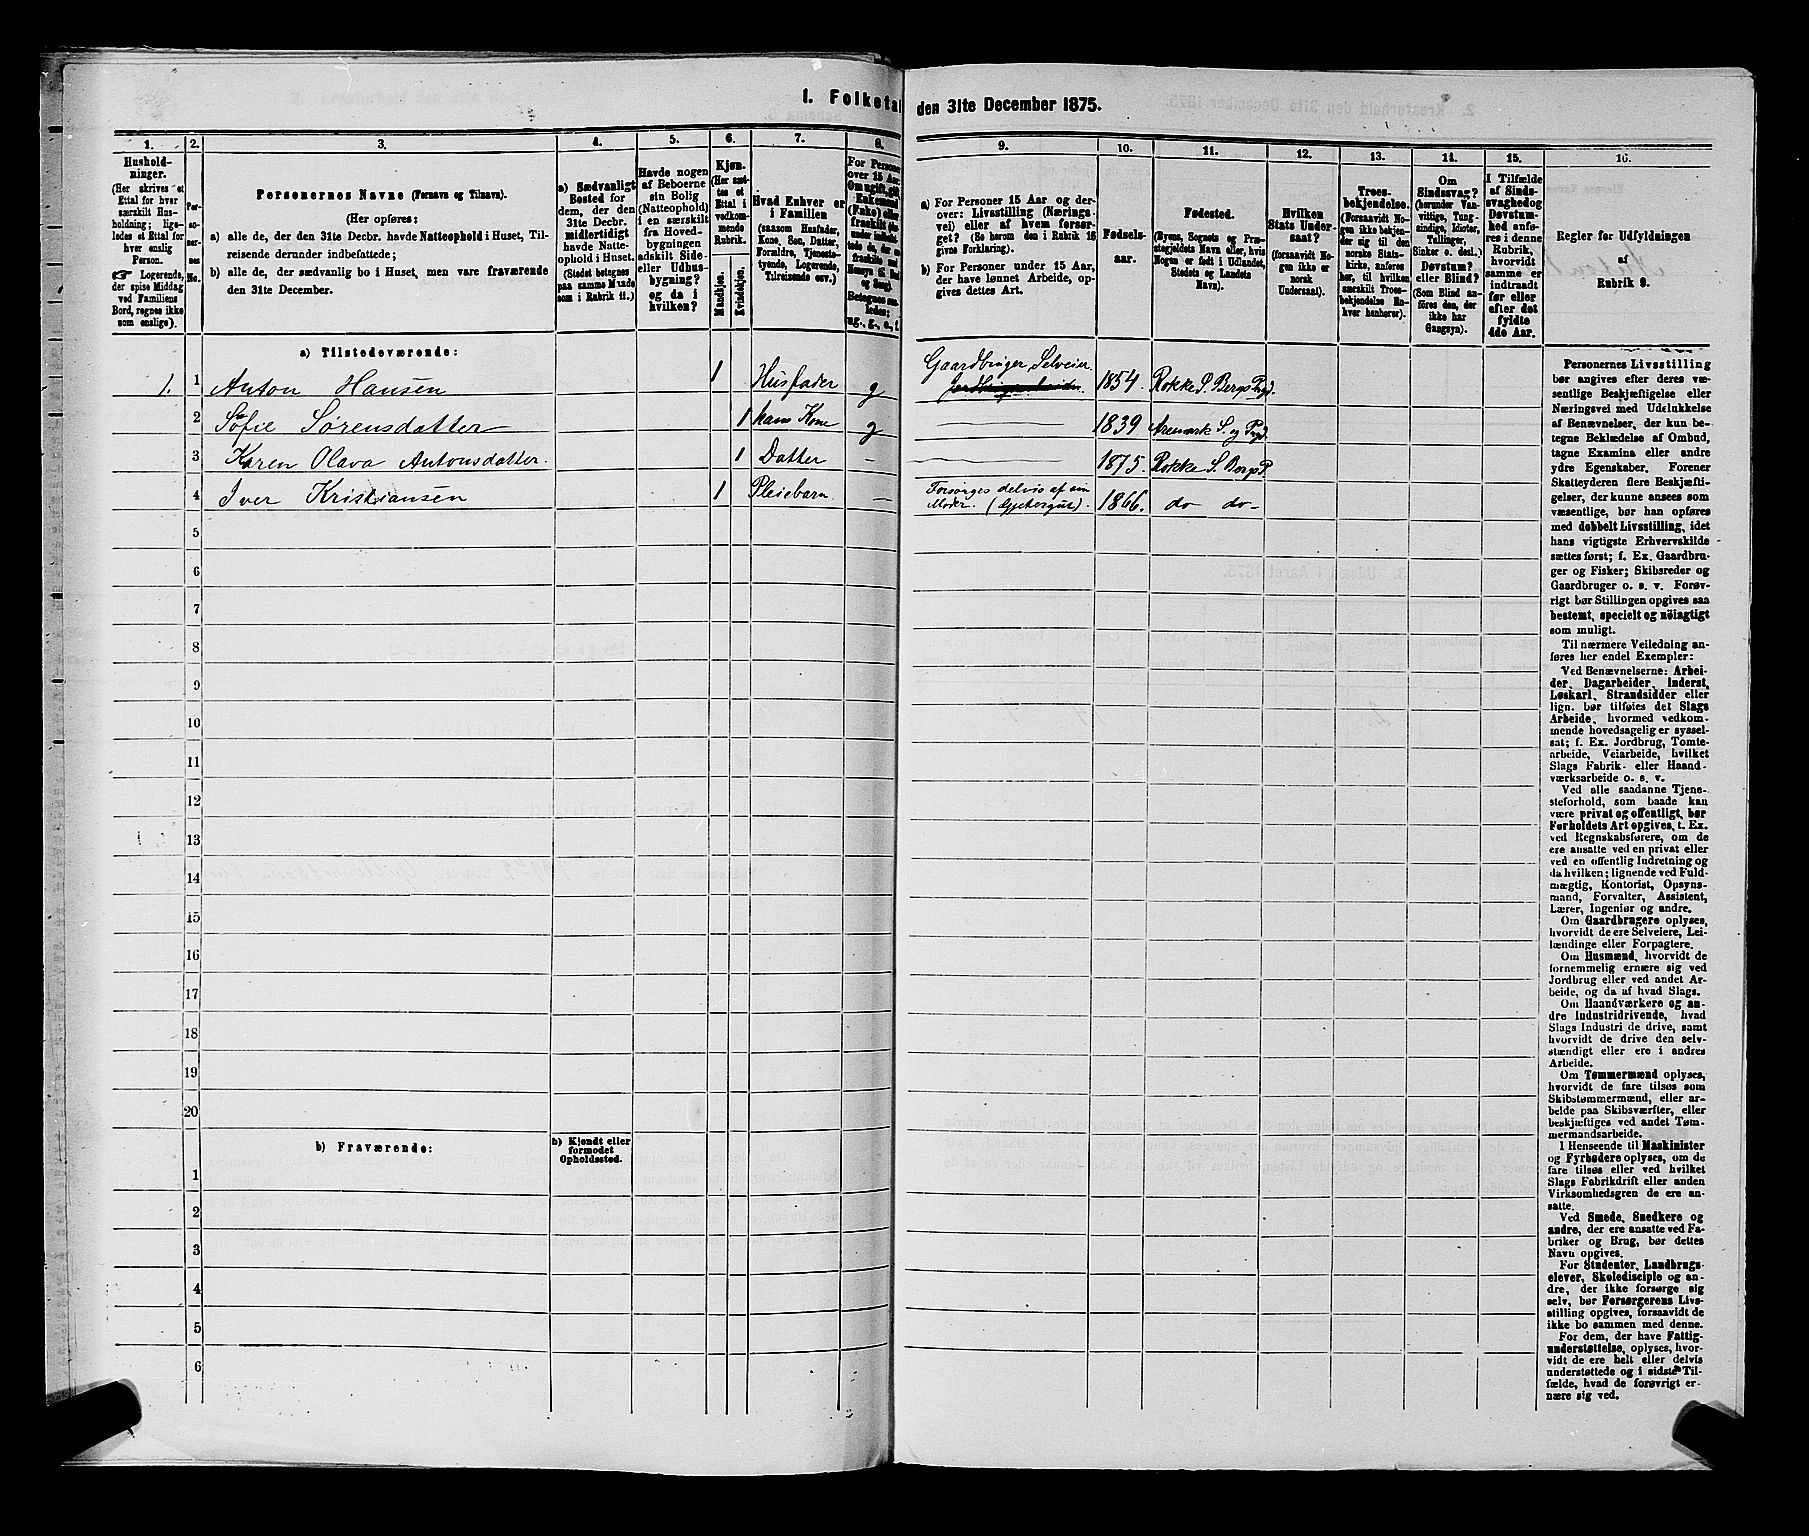 1. Folketal den 31te December 1875.
1. 2. 3. 4. 5. 6. 7. 8. 9. 10. 11. 12. 13. 14. 15. 16.
Hushold-
ninger.
(Her skrives et
Ettal for hver
særskilt Hus-
holdning; lige-
ledes et Ettal for
hver enslig
Person.
☞ Logerende,
der spise Middag
ved Familiens
Bord, regnes ikke
som enslige).
Per-
so-
ner-
nes
No.
Personernes Navne (Fornavn og Tilnavn).
(Her opføres:
a) alle de, der den 31te Decbr. havde Natteophold i Huset, Til-
reisende derunder indbefattede;
b) alle de, der sædvanlig bo i Huset, men vare fraværende
den 31te December.
a) Sædvanligt
Bosted for
dem, der den
31te Decbr.
midlertidigt
havde Natte-
ophold i Huset.
(Stedet betegnes
paa samme Maade
som i Rubrik 11.)
Havde nogen
af Beboerne
sin Bolig
(Natteophold)
i en særskilt
fra Hoved-
bygningen
adskilt Side-
eller Udhus-
bygning?
og da i
hvilken?
Kjøn.
(Her sæt-
tes et
Ettal i
vedkom-
mende
Rubrik.
Mandkjøn.
Kvindekjøn.
Hvad Enhver er
i Familien
(saasom Husfader,
Kone, Søn, Datter,
Forældre, Tjeneste-
tyende, Logerende,
Tilreisende osv.)
For Personer
over 15 Aar:
Om ugift, gift,
Enkemand
(Enke) eller
fraskilt
Betegnes saa-
ledes:
ug., g., e., f.
a) For Personer 15 Aar og der-
over: Livsstilling (Nærings-
vei) eller af hvem forsør-
get? (Se herom den i Rubrik 16
givne Forklaring).
b) For Personer under 15 Aar,
der have lønnet Arbeide, op-
gives dettes Art.
Fødsels-
aar.
Fødested.
(Byens, Sognets og Præ-
stegjeldets Navn eller, hvis
Nogen er født i Udlandet,
Stedets og Landets
Navn).
Hvilken
Stats Under-
saat?
(forsaavidt No-
gen ikke er
norsk
Undersaat).
Troes-
bekjendelse.
(Forsaavidt No-
gen ikke bekjen-
der sig til den
norske Stats-
kirke, anføres
her, til hvilken
særskilt Troes-
bekjendelse En-
hver henhører).
Om
Sindssvag?
(herunder Van-
vittige, Tung-
sindige, Idioter,
Tullinger,
Sinker o. desl.)
Døvstum?
eller Blind?
(Som Blind an-
føres den, der
ikke har
Gangsyn).
I Tilfælde
af Sinds-
svaghed og
Døvstum-
hed anfø-
res i denne
Rubrik,
hvorvidt
samme er
indtraadt
før eller
efter det
fyldte
4de Aar.
Regler for Udfyldningen
af
Rubrik 9.
a) Tilstedeværende:
1. 1 Anton Hansen 1 Husfader g Gaardbruger Selveier 1854. Rokke S. Bergs Prgd.
2 Sofie Sørensdatter 1 hans Kone g 1839 Aremark S. og Prgd.
3 Karen Olava Antonsdatter. 1 Datter — 1875. Rokke S. Bergs P.
4 Iver Kristiansen 1 Pleiebarn — Forsørges delvis af sin
Moder. 1866. do do-
5
6
7
8
9
10
11
12
13
14
15
16
17
18
19
20
b) Fraværende:
b) Kjendt eller
formodet
Opholdssted.
1
2
3
4
5
6
Personernes Livsstilling
bør angives efter deres væ-
sentlige Beskjæftigelse eller
Næringsvei med Udelukkelse
af Benævnelser, der kun be-
tegne Beklædelse af Ombud,
tagne Examina eller andre
ydre Egenskaber. Forener
Skatteyderen flere Beskjæfti-
gelser, der kunne ansees som
væsentlige, bør han opføres
med dobbelt Livsstilling, idet
hans vigtigste Erhvervskilde
sættes først; f. Ex. Gaardbru-
ger og Fisker; Skibsreder og
Gaardbruger o. s. v. Forøv-
rigt bør Stillingen opgives saa
bestemt, specielt og nöiagtigt
som muligt.
Til nærmere Veiledning an-
føres her endel Exempler:
Ved Benævnelserne: Arbei-
der, Dagarbeider, Inderst,
Løskarl, Strandsidder eller
lign. bør tilføies det Slags
Arbeide, hvormed vedkom-
mende hovedsagelig er syssel-
sat; f. Ex. Jordbrug, Tomte-
arbeide, Veiarbeide, hvilket
Slags Fabrik- eller Haand-
værksarbeide o. s. v.
Ved alle saadanne Tjene-
steforhold, som baade kan
være privat og offentligt, bør
Forholdets Art opgives, t. Ex.
ved Regnskabsførere, om de
ere ansatte ved en privat eller
ved en offentlig Indretning og
da hvilken; lignende ved Fuld-
mægtig, Kontorist, Opsyns-
mand, Forvalter, Assistent,
Lærer, Ingeniør og andre.
Om Gaardbrugere oplyses,
hvorvidt de ere Selveiere, Lei-
lændinge eller Forpagtere.
Om Husmænd, hvorvidt de
fornemmelig ernære sig ved
Jordbrug eller ved andet Ar-
beide, og da af hvad Slags.
Om Haandværkere og an-
dre Industridrivende, hvad
Slags Industri de drive, samt
hvorvidt de drive den selv-
stændigt eller ere i andres
Arbeide.
Om Tømmermænd oplyses,
hvorvidt de fare tilsøs som
Skibstømmermænd, eller ar-
beide paa Skibsværfter, eller
beskjæftiges ved andet Tøm-
mermandsarbeide.
I Henseende til Maskinister
og Fyrbødere oplyses, om de
fare tilsøs eller ved hvilket
Slags Fabrikdrift eller anden
Virksomhedsgren de ere an-
satte.
Ved Smede, Snedkere og
andre, der ere ansatte ved Fa-
briker og Brug, bør dettes
Navn opgives.
For Studenter, Landbrugs-
elever, Skoledisciple og an-
dre, der ikke forsørge sig
selv, bør Forsørgerens Livs-
stilling opgives, forsaavidt de
ikke bo sammen med denne.
For dem, der have Fattig-
understøttelse, oplyses, hvor-
vidt de ere helt eller delvis
understøttede og i sidste Til-
fælde, hvad de forøvrigt er-
nære sig ved.